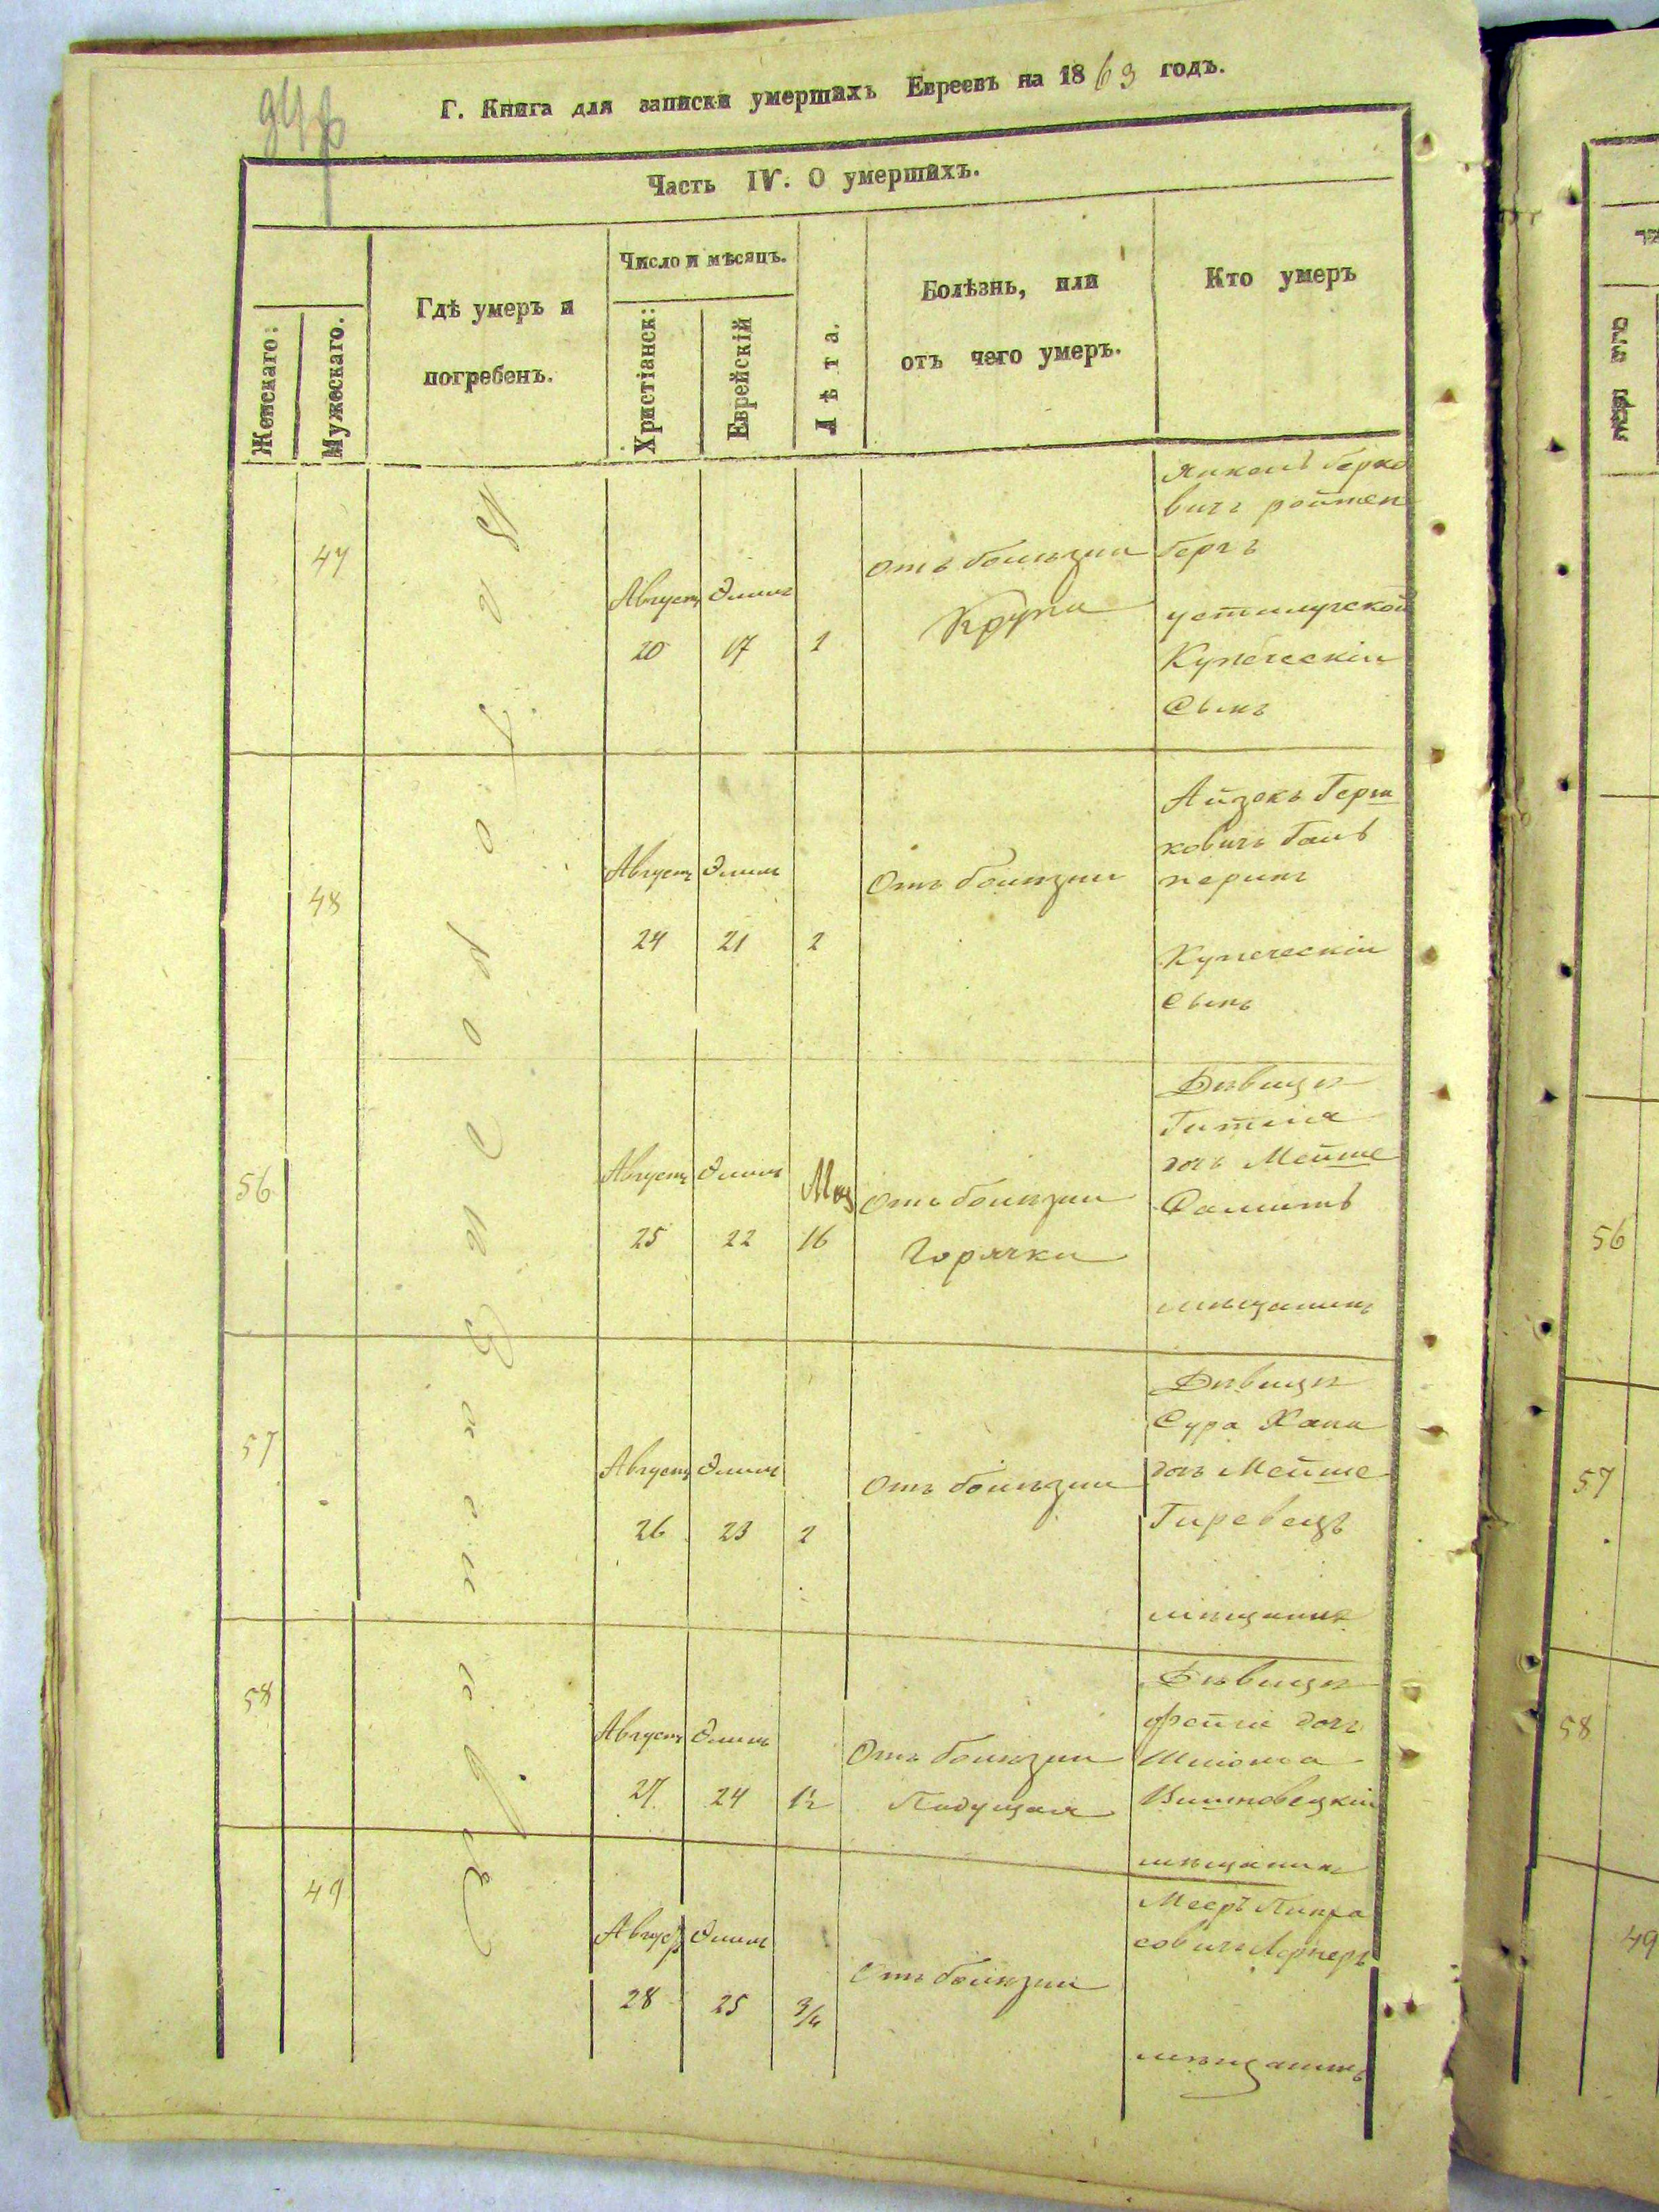 Г. Книга для записки умершихъ Евреевъ на 1863 годъ.
Часть IV. О умершихъ.
Женскаго:
Мужескаго.
Гдѣ умеръ и
погребенъ.
Число и мѣсяцъ.
Христіанск:
Еврейскій
Лѣта.
Болѣзнь, или
отъ чего умеръ.
Кто умеръ
47
Августъ
20
Элилъ
17
1
Отъ болѣзни
Крупа
Янкель Берко
вичъ ройтен
бергъ
устилугской
Купеческій
Сынъ
48
Августъ
24
Элилъ
21
2
Отъ болѣзни
Айзокъ Герш
ковичъ Галь
перинъ
Купеческій
Сынъ
56
Августъ
25
Элилъ
22
Мѣс
16
Отъ болѣзни
Горячки
Дѣвица
Гитля
дочь Мейше
мѣщанинъ
57
Августъ
26
Элилъ
23
2
Отъ болѣзни
Дѣвица
Сура Хана
дочь Мейше
мѣщанинъ
58
Августъ
27
Элилъ
24
1½
Отъ болѣзни
Падущая
Дѣвица
фейга дочь
Шлиома
Вишновецкій
мѣщанинъ
49
Август
28
Элилъ
25
3/4
Отъ болѣзни
Мееръ Пинха
совичъ Лернеръ
мѣщанинъ
56
57
58
49